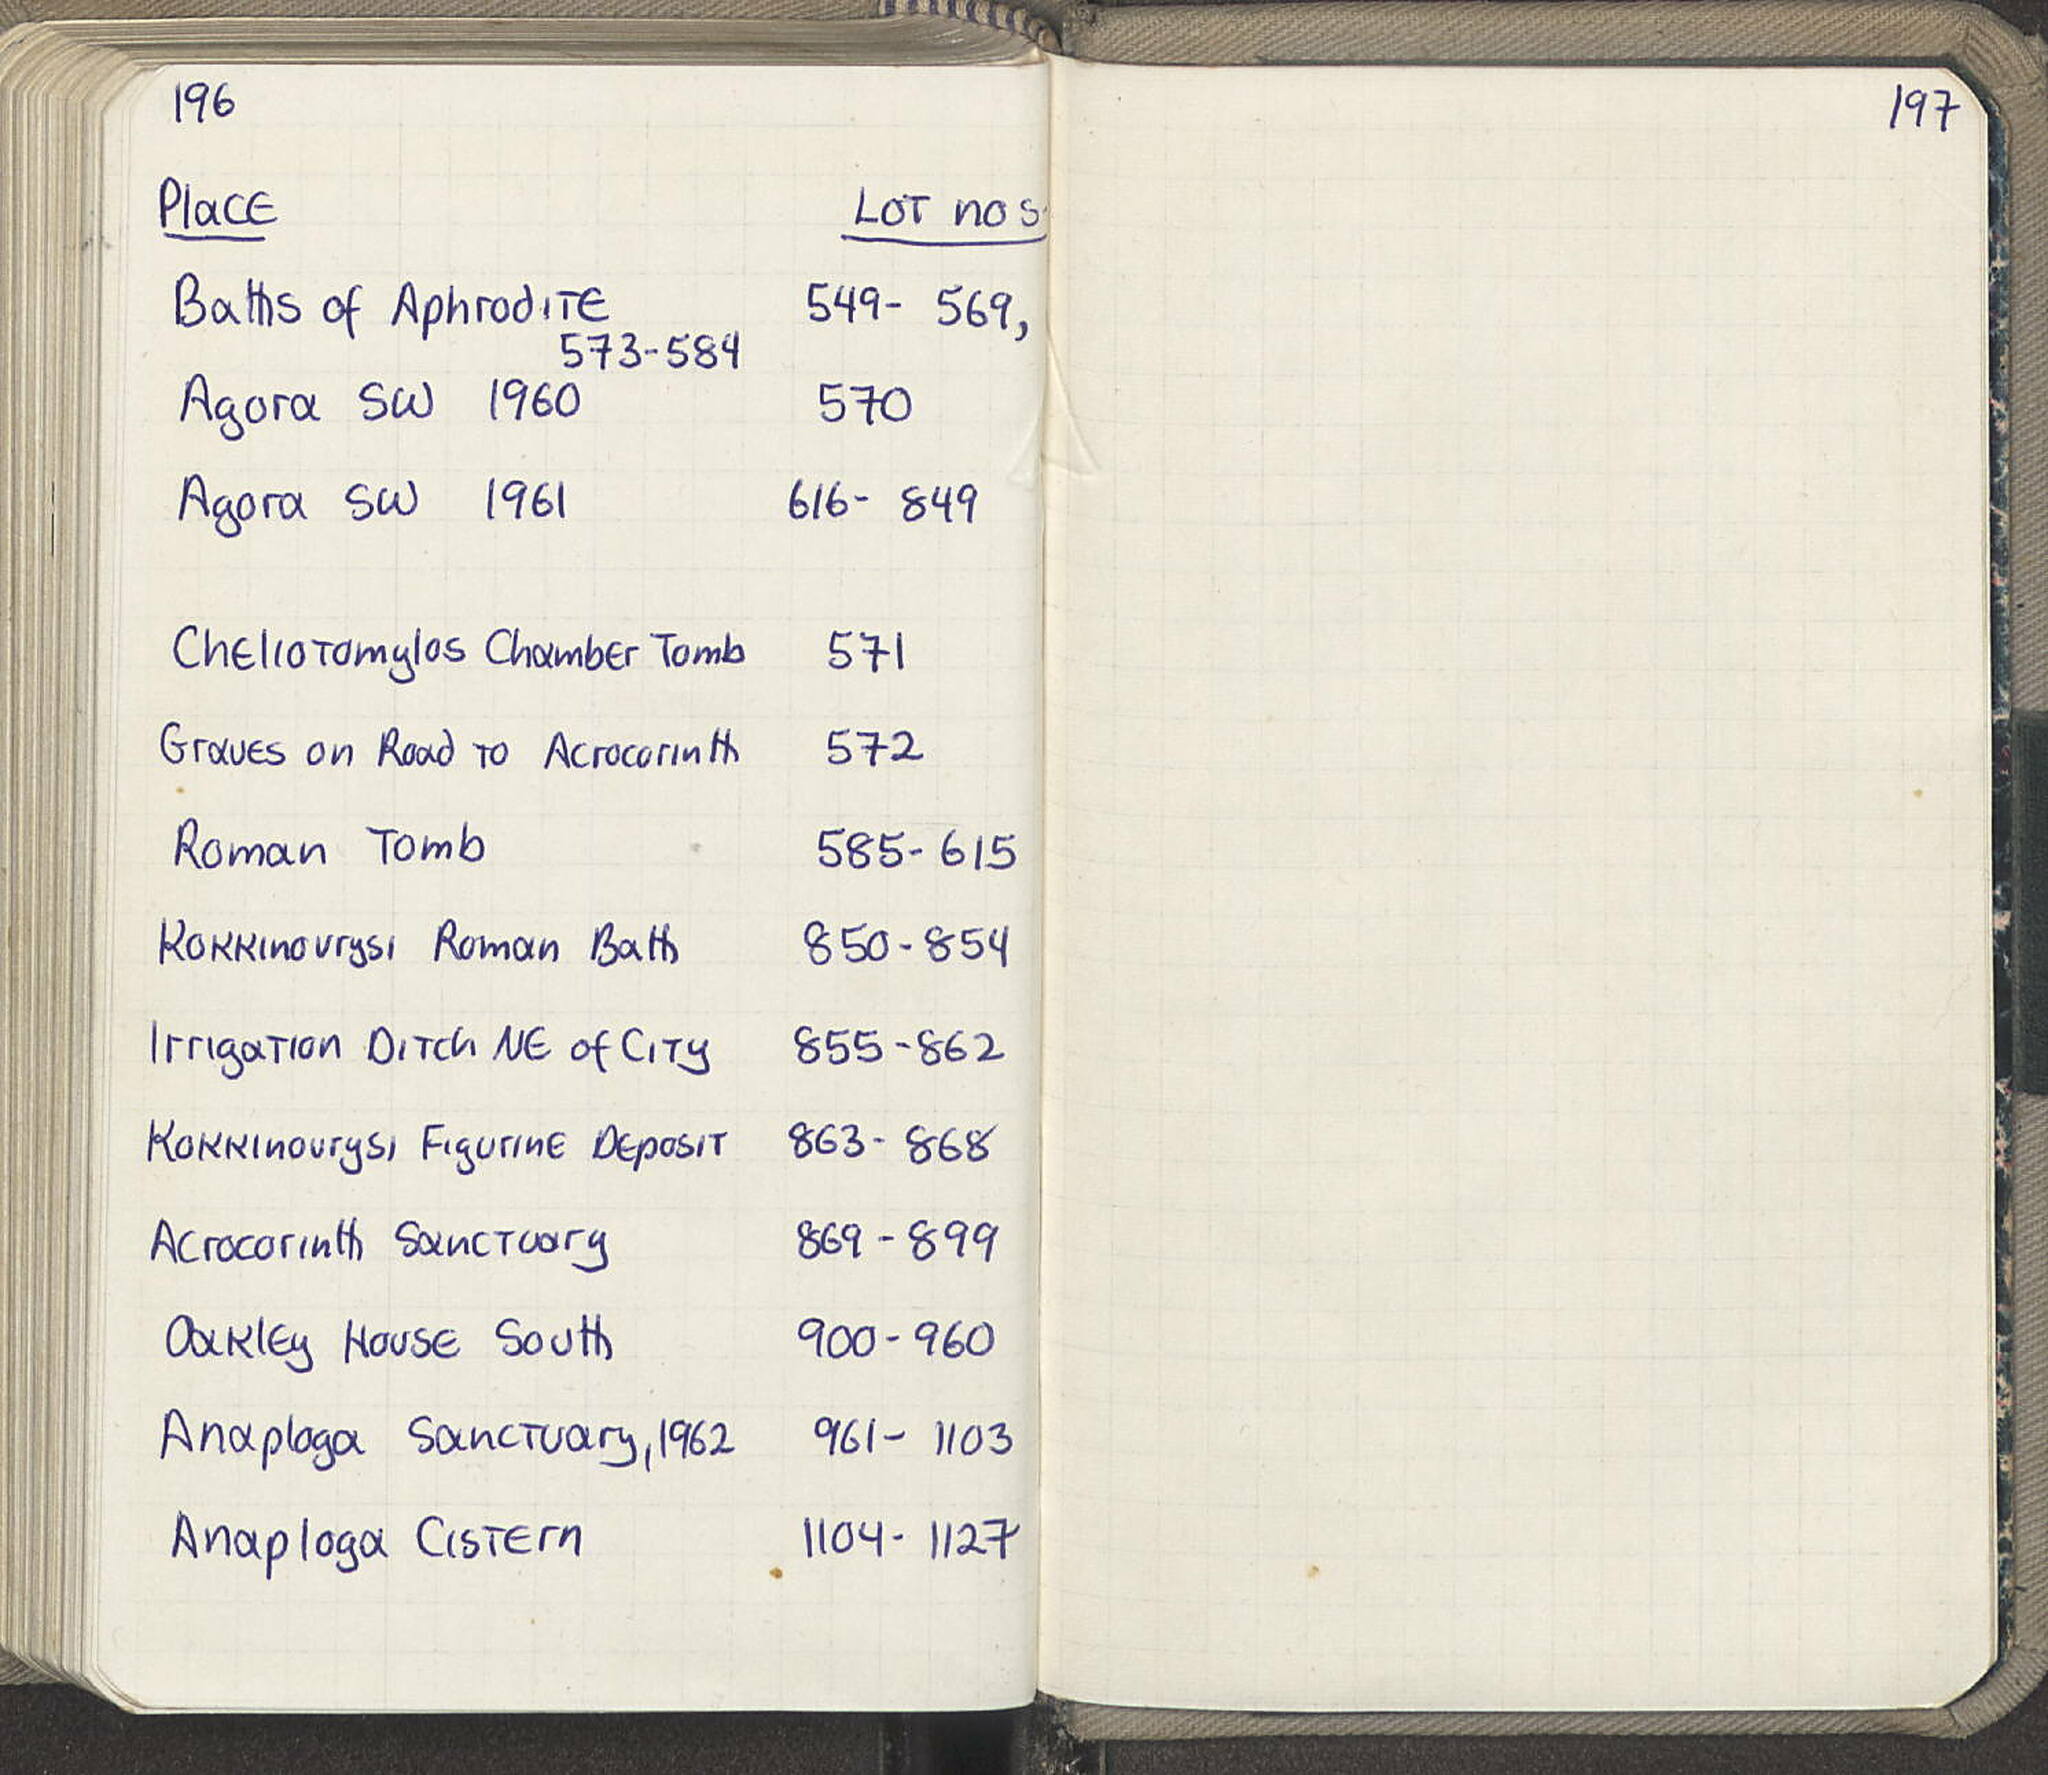 196
Place Lot nos.
Baths of Aphrodite 549- 569,
573-584
Agora SW 1960 570
Agora SW 1961 616- 849
Cheliotomylos Chamber Tomb 571
Graves on Road to Acrocorinth 572
Roman Tomb 585-615
Kokkinovrysi Roman Bath 850-854
Irrigation Ditch NE of City 855-862
Kokkinovrysi Figurine Deposit 863-868
Acrocorinth Sanctuary 869-899
Oakley House South 900-960
Anaploga Sanctuary, 1962 961- 1103
Anaploga Cistern 1104- 1127
197